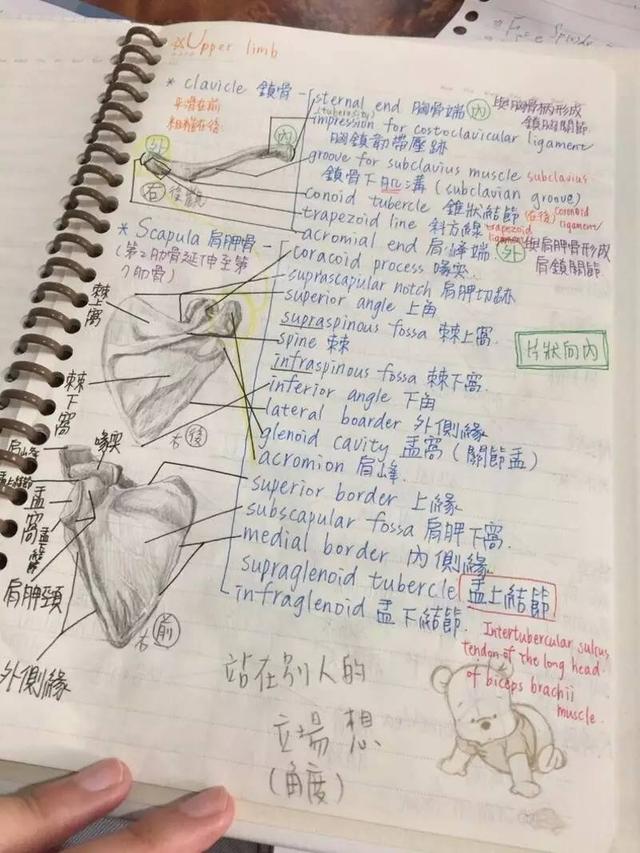 ※Upper limb
* clavicle 鎖骨
平滑在前
粗糙在後
sternal end 胸骨端 內 與胸骨柄形成
鎖胸關節
(tuberosity)
impression for costoclavicular ligament
胸鎖韌帶壓跡
groove for subclavius muscle subclavius
鎖骨下肌溝 (subclavian groove)
conoid tubercle 錐狀結節 (在後) coronoid
ligament
trapezoid line 斜方線 trapezoid
ligament
acromial end 肩峰端 外 與肩胛骨形成
肩鎖關節
外
內
右 後觀
* Scapula 肩胛骨
(第2肋骨延伸至第
7肋骨)
coracoid process 喙突
suprascapular notch 肩胛切跡
superior angle 上角
supraspinous fossa 棘上窩
spine 棘
infraspinous fossa 棘下窩
inferior angle 下角
lateral boarder 外側緣
glenoid cavity 盂窩 (關節盂)
acromion 肩峰
superior border 上緣
subscapular fossa 肩胛下窩
medial border 內側緣
supraglenoid tubercle 盂上結節
infraglenoid 盂下結節
片狀向內
棘上窩
棘下窩
右 後
肩峰
喙突
盂上結節
盂窩
肩胛頸
外側緣
右 前
Intertubercular sulcus
tendon of the long head
of biceps brachii
muscle
站在別人的
立場想
(角度)